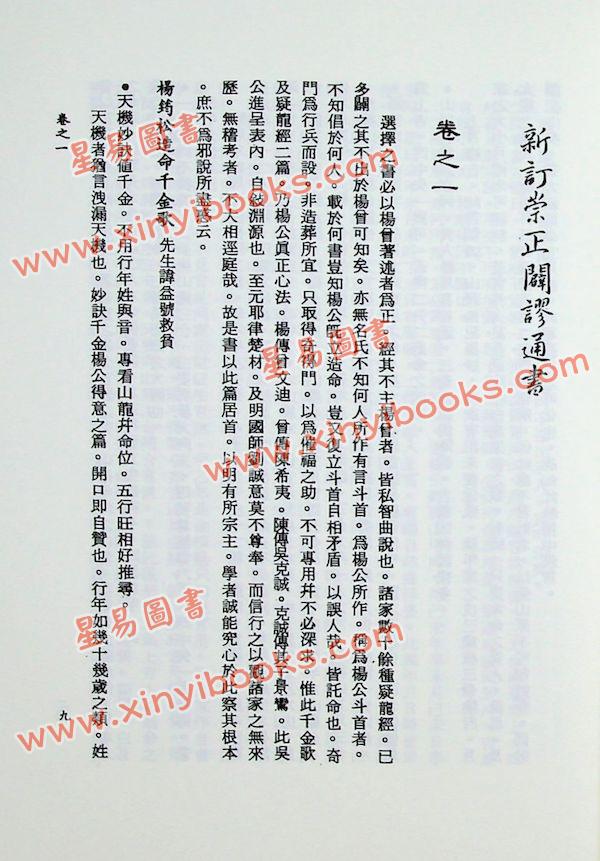 新訂崇正闢謬通書
卷之一
選擇之書必以楊曾著述者爲正。經其不主楊曾者。皆私智曲說也。諸家數十餘種疑龍經。已
多闢之其不出於楊曾可知矣。亦無名氏不知何人所作有言斗首。爲楊公所作。稱爲楊公斗首者。
不知倡於何人。載於何書豈知楊公既立造命。豈又復立斗首自相矛盾。以誤人哉。皆託命也。奇
門爲行兵而設。非造葬所宜。只取得奇得門。以爲催福之助。不可專用幷不必深求。惟此千金歌
及疑龍經二篇。乃楊公眞正心法。楊傳曾文迪。曾傳陳希夷。陳傳吳克誠。克誠傳其子景鸞。此吳
公進呈表內。自敘淵源也。至元耶律楚材。及明國師劉誠意莫不尊奉。而信行之以觀諸家之無來
歷。無稽考者。不大相逕庭哉。故是書以此篇居首。以明有所宗主。學者誠能究心於此察其根本
。庶不爲邪說所蠱惑云。
楊筠松造命千金歌 先生諱益號救貧
●天機妙訣値千金。不用行年姓與音。專看山龍幷命位。五行旺相好推尋。
天機者猶言洩漏天機也。妙訣千金楊公得意之篇。開口即自贊也。行年如幾十幾歲之類。姓
卷之一
九
星易圖書
www.xinyibooks.com
星易圖書
www.xinyibooks.com
星易圖書
www.xinyibooks.com